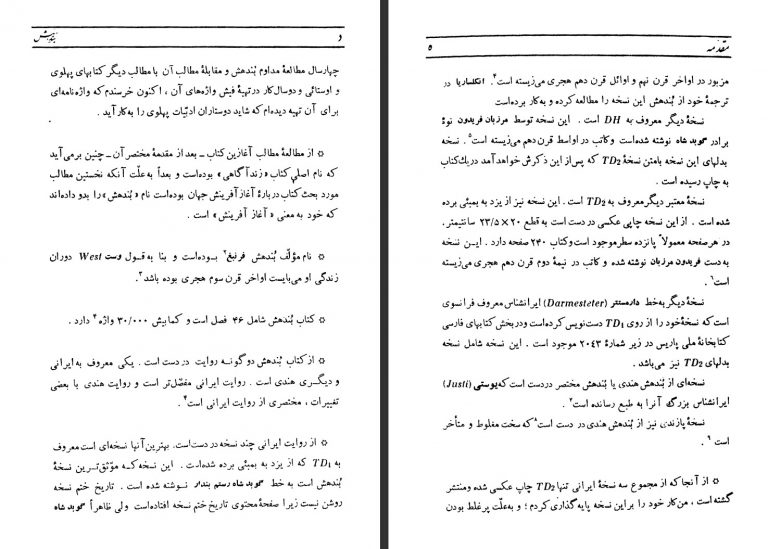 د
بندهش
چهارسال مطالعهٔ مداوم بُندهش و مقابلهٔ مطالب آن با مطالب دیگر کتابهای پهلوی
و اوستائی و دوسال کار در تهیهٔ فیش واژه‌های آن ، اکنون خرسندم که واژه‌نامه‌ای
برای آن تهیه دیده‌ام که شاید دوستاران ادبّیات پهلوی را به‌کار آید .
☼ از مطالعهٔ مطالب آغازین کتاب ـ بعد از مقدمهٔ مختصر آن ـ چنین برمی‌آید
که نام اصلی کتاب «زند آگاهی» بوده‌است و بعداً به‌علّت آنکه نخستین مطالب
مورد بحث کتاب دربارهٔ آغاز آفرینش جهان بوده‌است نام «بُندهش» را بدو داده‌اند
که خود به معنی «آغاز آفرینش» است .
☼ نام مؤلّف بُندهش فرنبغ۲ بوده‌است و بنا به قول وست West دوران
زندگی او می‌بایست اواخر قرن سوم هجری بوده باشد۳ .
☼ کتاب بُندهش شامل ۴۶ فصل است و کمابیش ۳۰/۰۰۰ واژه۴ دارد .
☼ از کتاب بُندهش دو گونه روایت در دست است . یکی معروف به ایرانی
و دیگری هندی است . روایت ایرانی مفصّل‌تر است و روایت هندی با بعضی
تغییرات ، مختصری از روایت ایرانی است۴ .
☼ از روایت ایرانی چند نسخه در دست‌است. بهترین آنها نسخه‌ای است معروف
به TD1 که از یزد به بمبئی برده شده‌است . این نسخه که مؤثّق‌ترین نسخهٔ
بُندهش است به خط گوبد شاه رستم بندار نوشته شده است . تاریخ ختم نسخه
روشن نیست زیرا صفحهٔ محتوی تاریخ ختم نسخه افتاده‌است ولی ظاهراً گوبد شاه
مقدّمه
۵
مزبور در اواخر قرن نهم و اوائل قرن دهم هجری می‌زیسته است۴. انکلساریا در
ترجمهٔ خود از بُندهش این نسخه را مطالعه کرده و به‌کار برده‌است
نسخهٔ دیگر معروف به DH است . این نسخه توسط مرزبان فریدون نوهٔ
برادر گوبد شاه نوشته شده‌است و کاتب در اواسط قرن دهم می‌زیسته است۵. نسخه
بدلهای این نسخه بامتن نسخهٔ TD2 که پس‌از این ذکرش خواهدآمد در یک‌کتاب
به چاپ رسیده است .
نسخهٔ معتبر دیگر معروف به TD2 است . این نسخه نیز از یزد به بمبئی برده
شده است . از این نسخه چاپی عکسی در دست است به قطع ۲۰ × ۲۳/۵ سانتیمتر.
در هر صفحه معمولاً پانزده سطر موجود است و کتاب ۲۴۰ صفحه دارد . این نسخه
به دست فریدون مرزبان نوشته شده و کاتب در نیمهٔ دوم قرن دهم هجری می‌زیسته
است۶ .
نسخهٔ دیگر به‌خط دارمستتر (Darmesteter) ایرانشناس معروف فرانسوی
است که نسخهٔ خود را از روی TD1 دست‌نویس کرده‌است و در بخش کتابهای فارسی
کتابخانهٔ ملی پاریس در زیر شمارهٔ ۲۰۴۳ موجود است . این نسخه شامل نسخه
بدلهای TD2 نیز می‌باشد .
نسخه‌ای از بُندهش هندی یا بُندهش مختصر دردست است که یوستی (Justi)
ایرانشناس بزرگ آنرا به طبع رسانده است۷ .
نسخهٔ پازندی نیز از بُندهش هندی در دست است۸ که سخت مغلوط و متأخر
است ۹ .
☼ از آنجا که از مجموع سه نسخهٔ ایرانی تنها TD2 چاپ عکسی شده ومنتشر
گشته است ، من کار خود را براین نسخه پایه‌گذاری کردم ؛ و به‌علّت پر غلط بودن